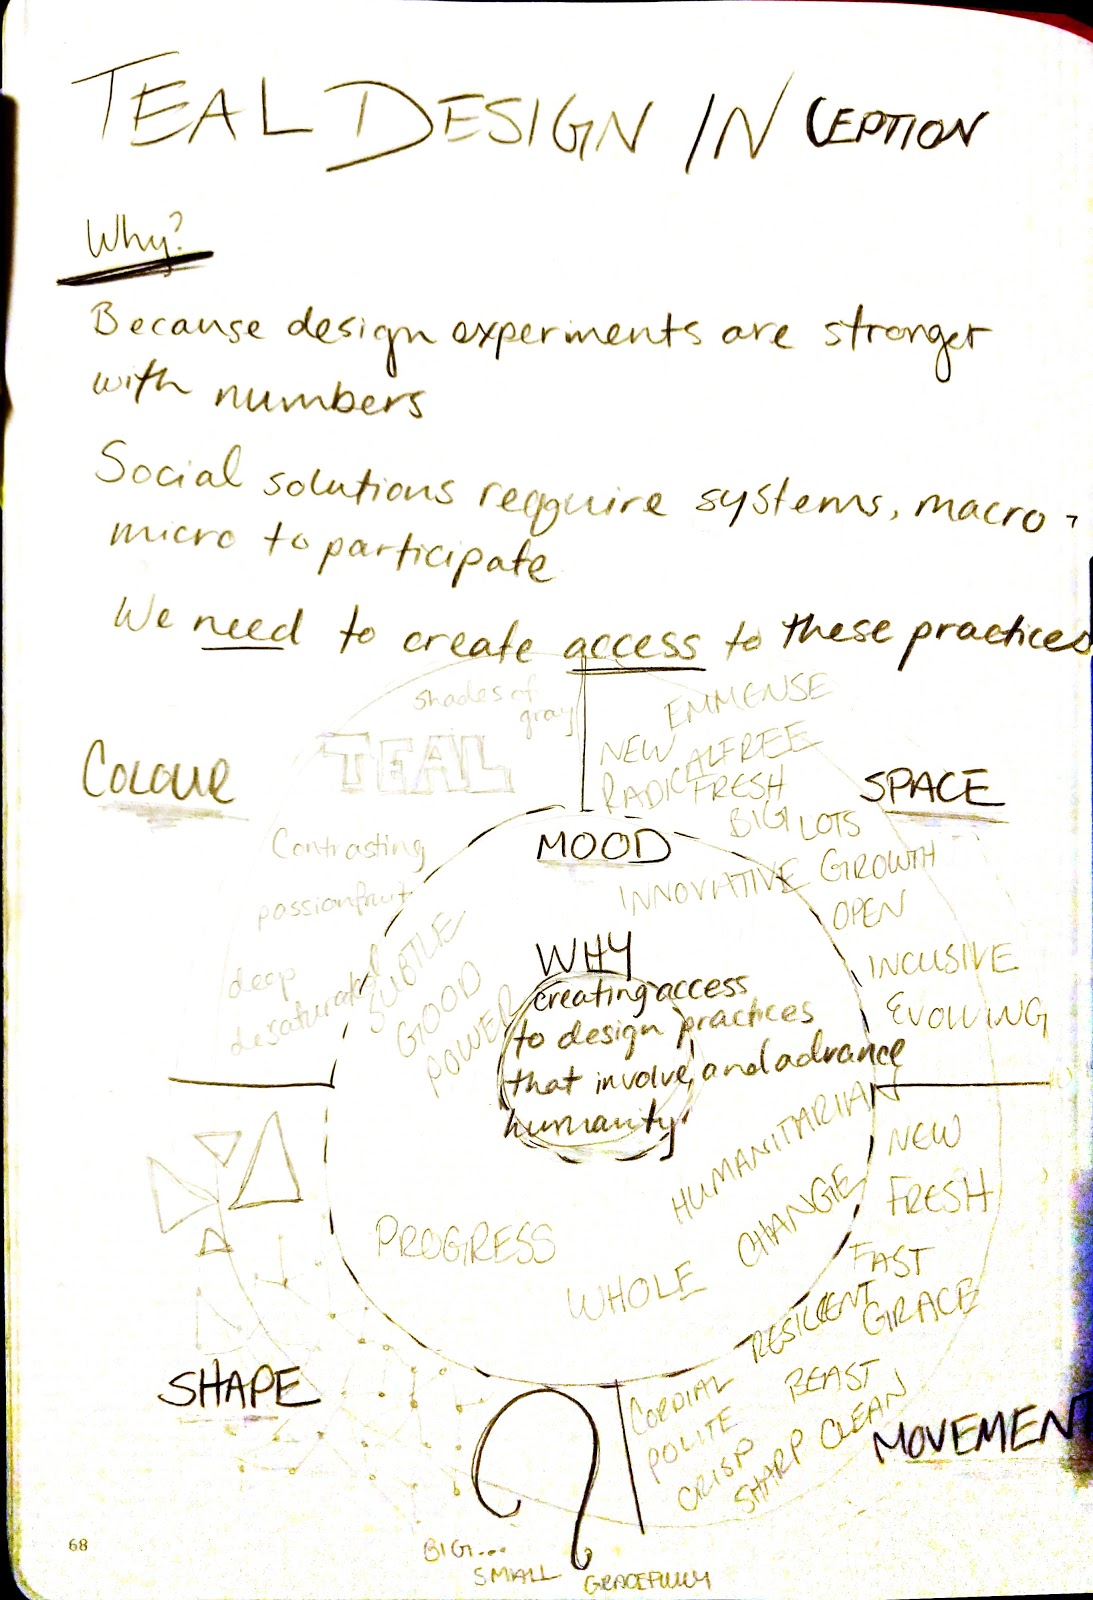 TEAL DESIGN INCEPTION
Why?
Because design experiments are stronger
with numbers
Social solutions reqquire systems, macro -
micro to participate
We need to create access to these practices
COLOUR
shades of
gray
TEAL
Contrasting
passionfruit
deep
desaturated
EMMENSE
NEW
RADICAL FREE
FRESH
BIG LOTS
SPACE
INNOVATIVE GROWTH
OPEN
INCUSIVE
EVOLVING
MOOD
SUBTLE
GOOD
POWER
WHY
creating access
to design practices
that involve and advance
humanity
HUMANITARIAN
CHANGE
WHOLE
PROGRESS
NEW
FRESH
FAST
RESILIENT
GRACE
BEAST
CORDIAL
POLITE
CRISP
SHARP CLEAN
MOVEMENT
SHAPE
BIG...
SMALL
GRACEFULLY
68